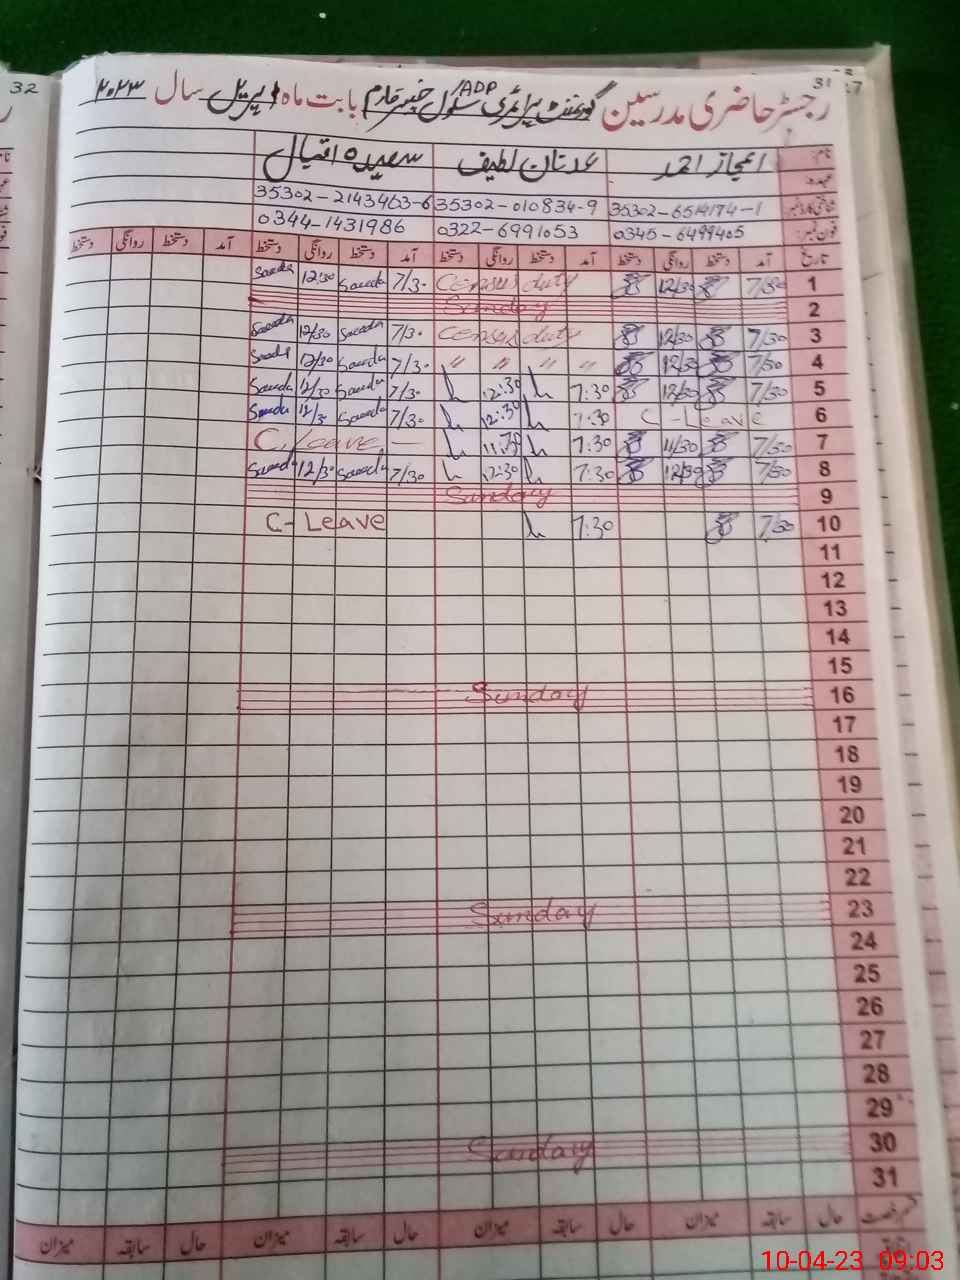 32
31
رجسٹر حاضری مدرسین گورنمنٹ پرائمری سکول ADP بابت ماہ اپریل سال ۲۰۲۳
نام: اعجاز احمد عدنان لطیف سعیدہ اقبال
عہدہ:
شناختی کارڈ نمبر 35302-6519174-1 35302-010834-9 35302-2143463-6
فون نمبر: 0345-6499405 0322-6991053 0344-1431986
تاریخ آمد دستخط روانگی دستخط آمد دستخط روانگی دستخط آمد دستخط روانگی دستخط آمد دستخط روانگی دستخط
1 7/30 12/30 Census duty 7/30 Saeeda 12:30 Saeeda
2 Sunday
3 7/30 12/30 Census duty 7/30 Saeeda 12/30 Saeeda
4 7/30 12/30 " " " " 7/30 Saeeda 12/30 Saeeda
5 7/30 12/30 7:30 12:30 7/30 Saeeda 12/30 Saeeda
6 C-Leave 7:30 12:30 7/30 Saeeda Saeeda
7 7/30 11/30 7:30 C. Leave —
8 7/30 12/30 7:30 12:30 7/30 Saeeda 12/30 Saeeda
9 Sunday
10 7/30 7:30 C- Leave
11
12
13
14
15
16 Sunday
17
18
19
20
21
22
23 Sunday
24
25
26
27
28
29
30 Sunday
31
قسم رخصت حال سابقہ میزان حال سابقہ میزان حال سابقہ میزان حال سابقہ میزان
10-04-23 09:03